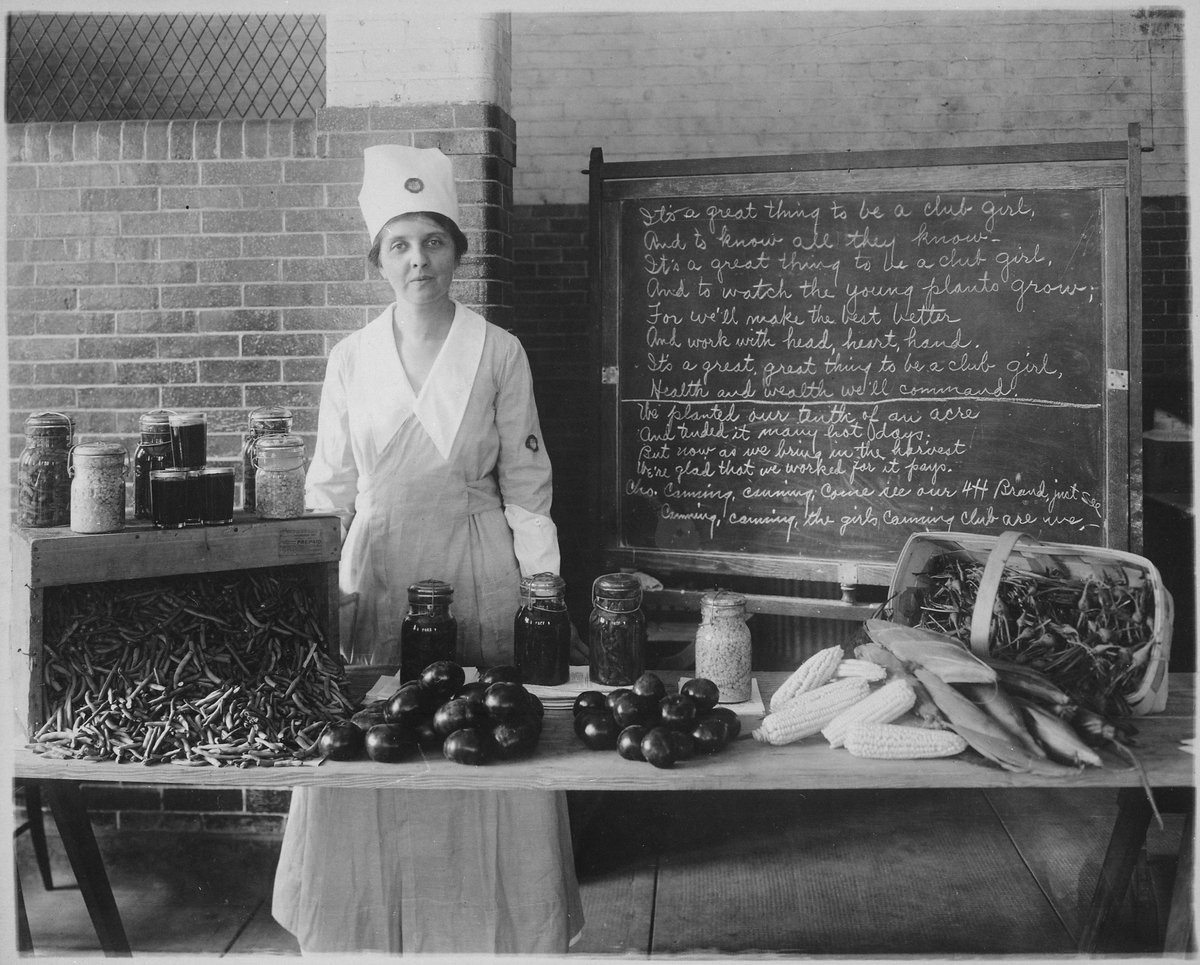 It's a great thing to be a club girl,
And to know all they know-
It's a great thing to be a club girl,
And to watch the young plants grow;
For we'll make the best better
And work with head, heart, hand.
It's a great, great thing to be a club girl,
Health and wealth we'll command.
We planted our tenth of an acre
And tended it many hot days
But now as we bring in the harvest
We're glad that we worked for it pays.
Cho. Canning, canning, come see our 4H Brand, just see
Canning, canning, the girls canning club are we,-